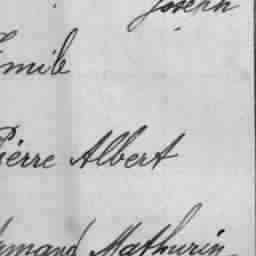 Joseph
Emile
Pierre Albert
Armand Mathurin